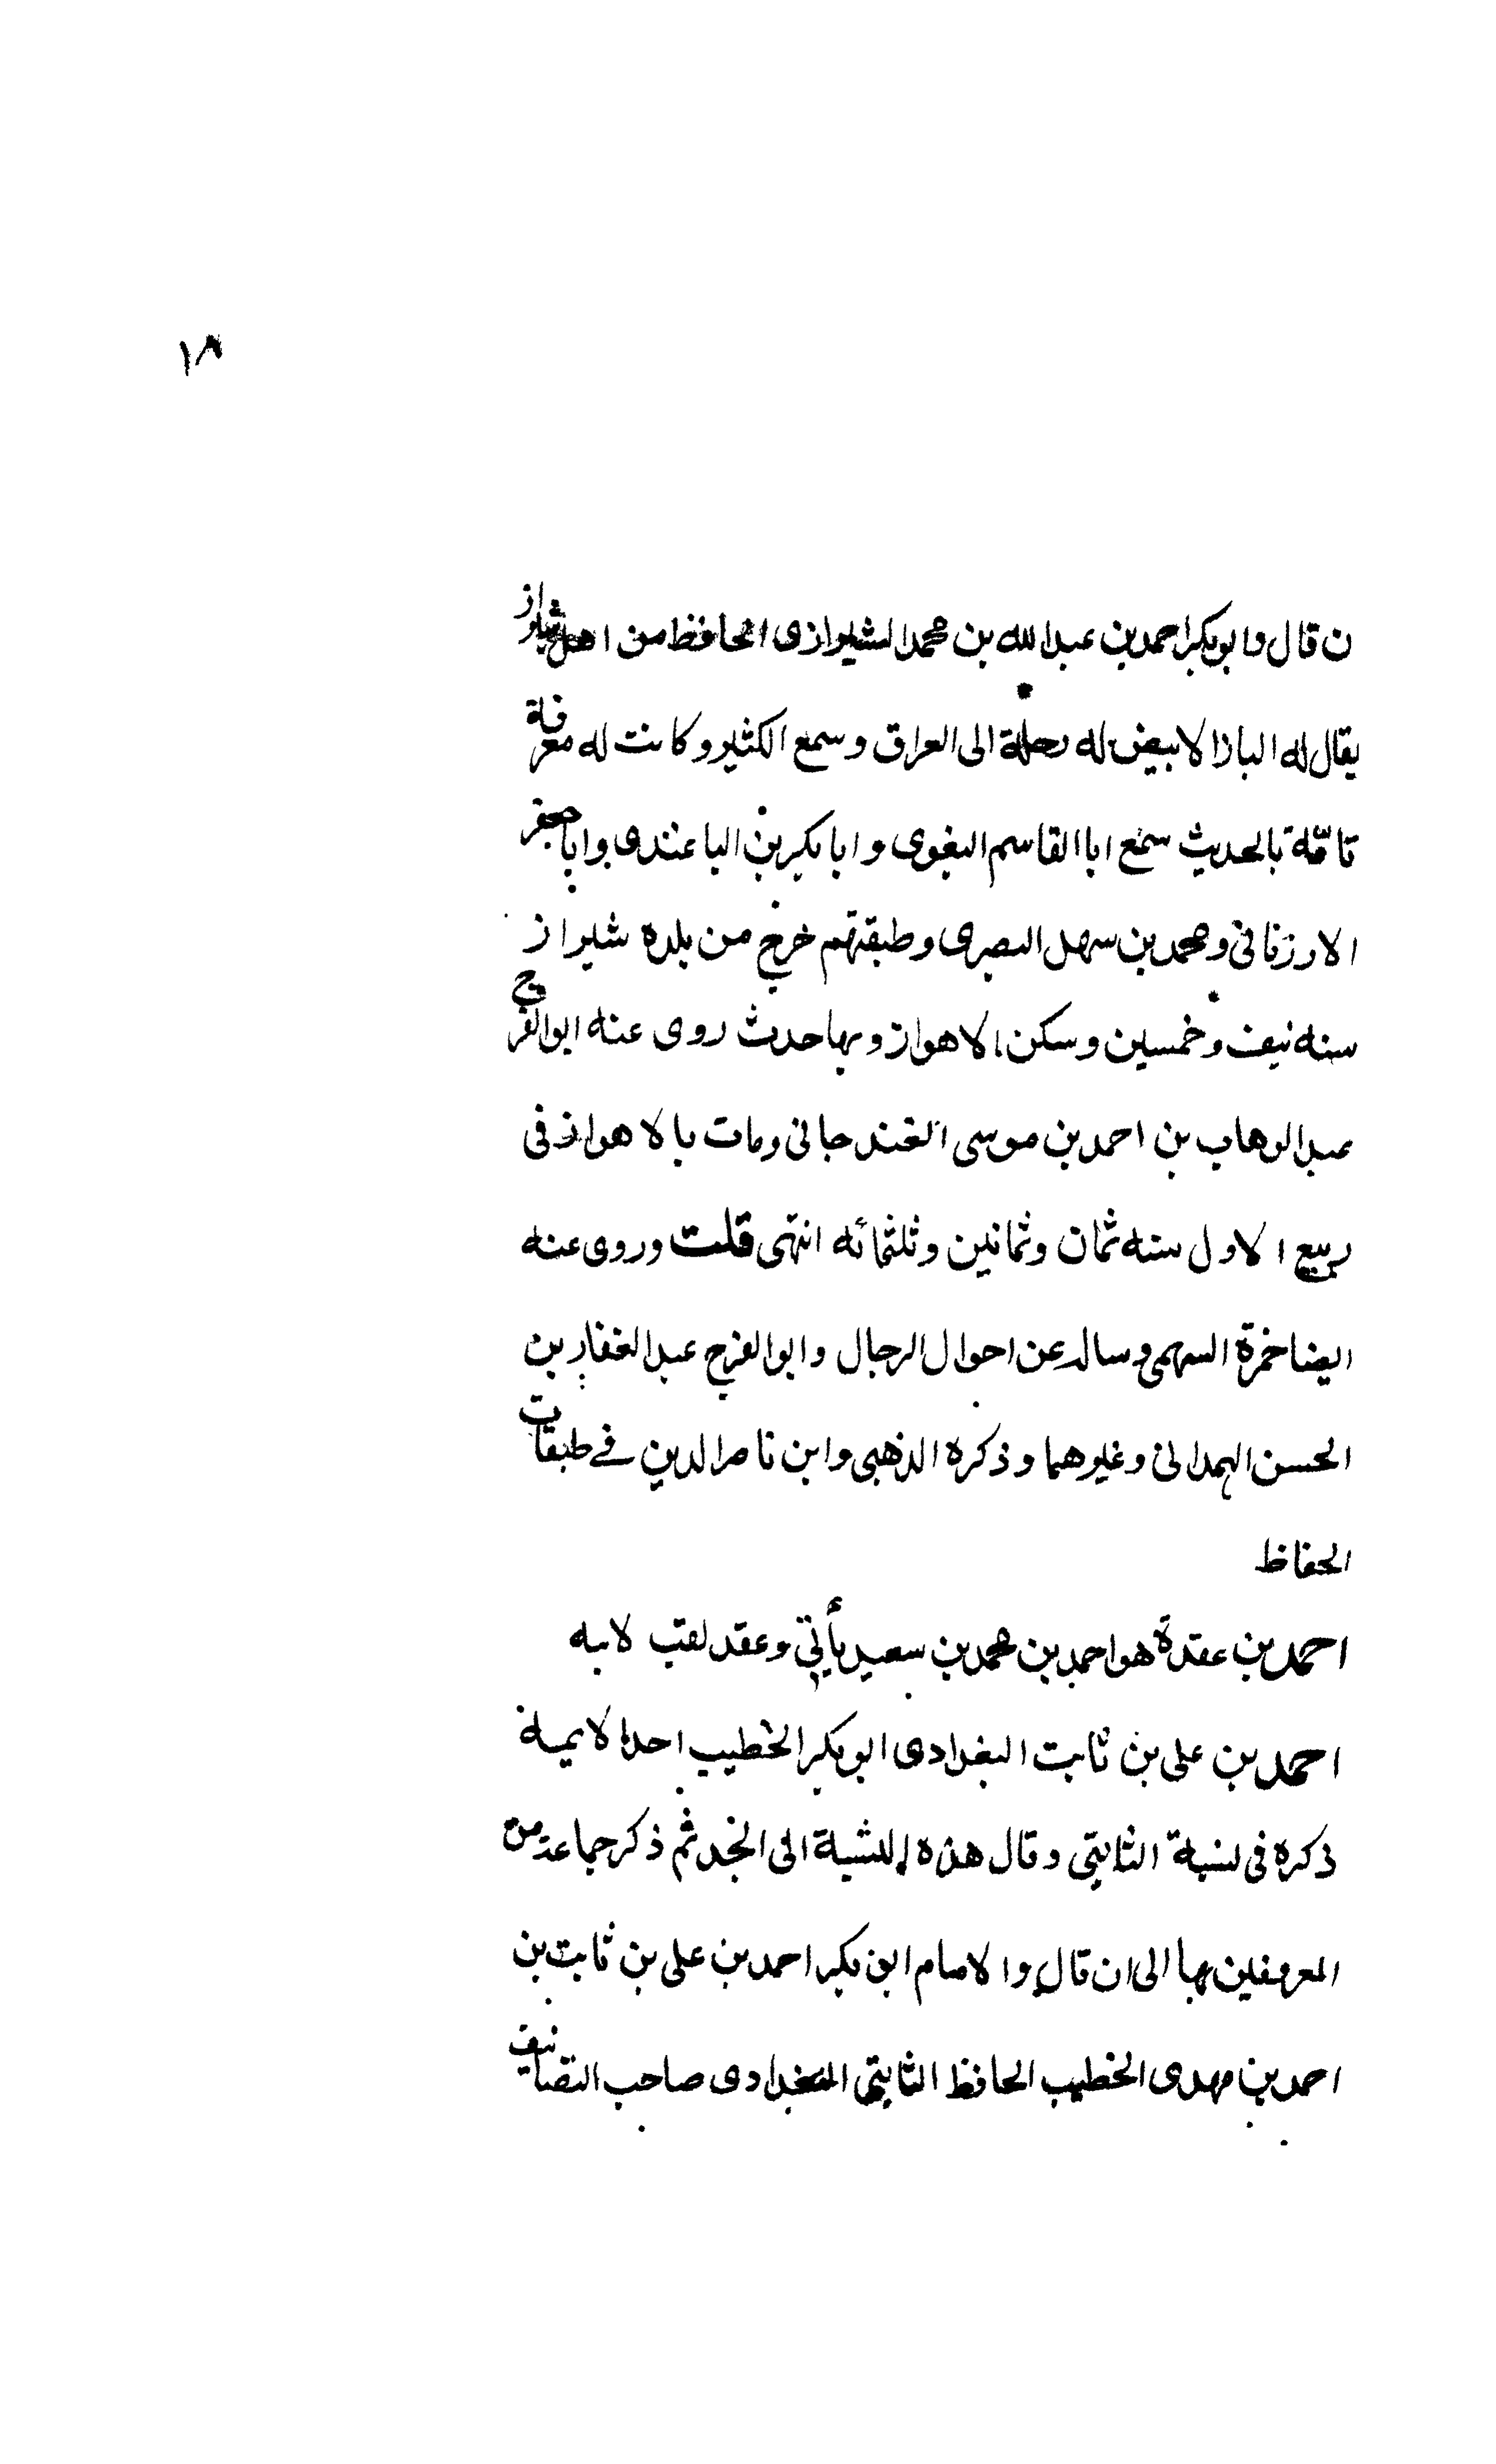 ١٨
ن قال وابوبكر احمد بن عبدالله بن محمد الشيرازى الحافظ من اهل شيراز
يقال له الباز الابيض له رحلة الى العراق وسمع الكثير وكانت له معرفة
تامّة بالحديث سمع ابا القاسم البغوى وابا بكر بن الباغندى وابا جعفر
الارزنانى ومحمد بن سهل البصرى وطبقتهم خرج من بلده شيراز
سنه نيف وخمسين وسكن الاهواز وبها حدث روى عنه ابوالفرج
عبدالوهاب بن احمد بن موسى الغندجانى ومات بالاهواز فى
ربيع الاول سنه ثمان وثمانين وثلثمائه انتهى قلت وروى عنه
ايضا حمزة السهمى وساله عن احوال الرجال وابوالفرج عبدالغفار بن
الحسن الهمدانى وغيرهما وذكره الذهبى وابن ناصرالدين فے طبقات
الحفاظ
احمد بن عقدة هو احمد بن محمد بن سعيد يأتى وعقد لقب لابيه
احمد بن على بن ثابت البغدادى ابوبكر الخطيب احد الايمة
ذكره فى نسبة الثابتى وقال هذه النسبة الى الجد ثم ذكر جماعة من
المعروفين بها الى ان قال والامام ابوبكر احمد بن على بن ثابت بن
احمد بن مهدى الخطيب الحافظ الثابتى البغدادى صاحب التصانيف